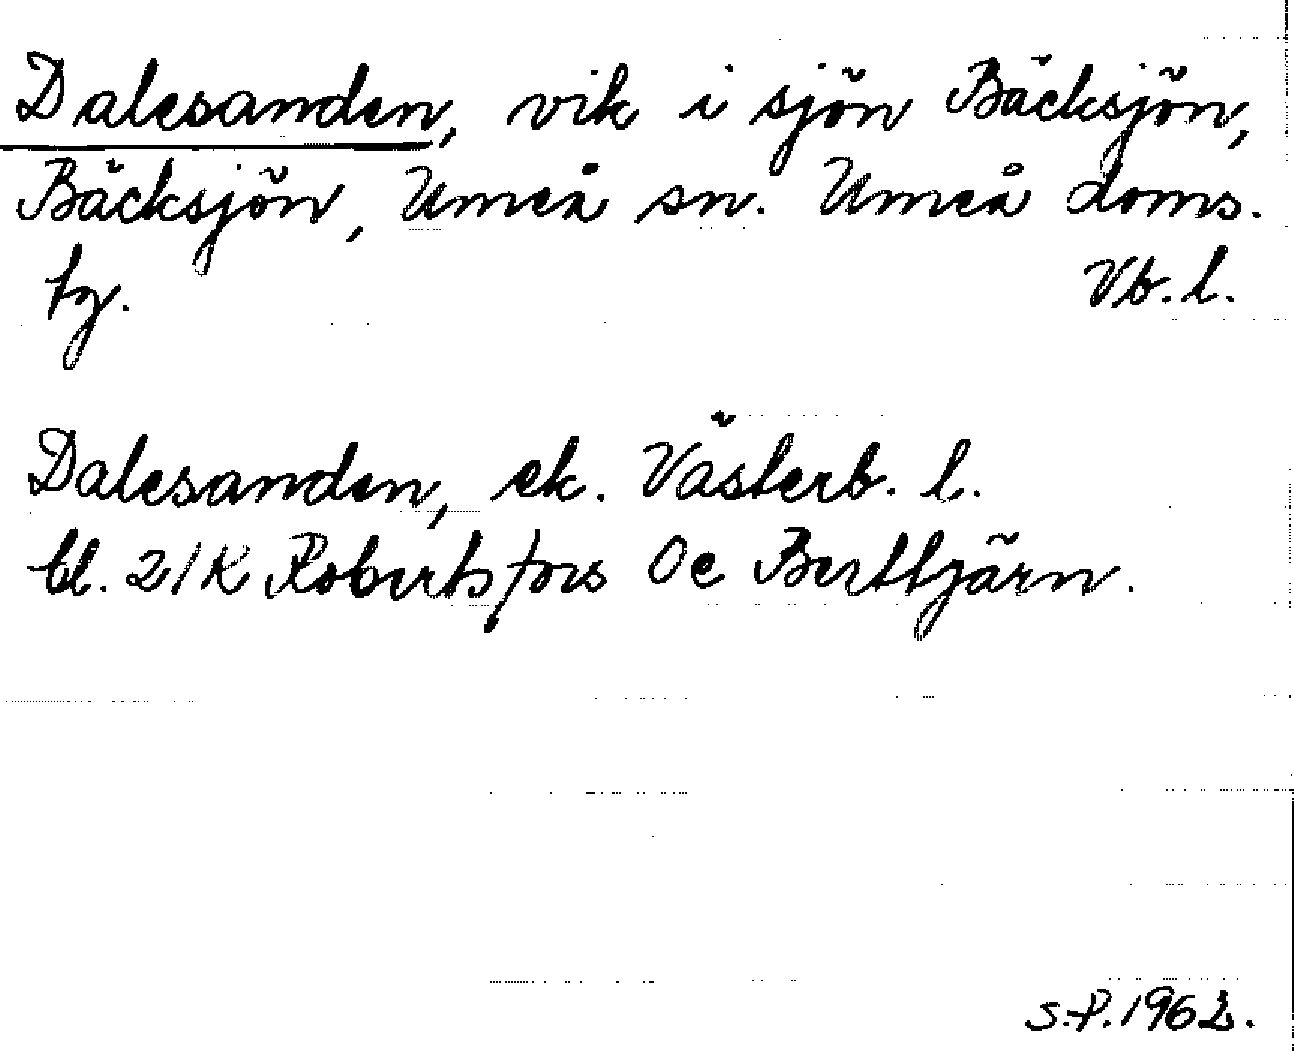 Dalesanden, vik i sjön Bäcksjön,
Bäcksjön, Umeå sn. Umeå doms.
tg. Vb. l.
Dalesanden, ek. Västerb. l.
bl. 21K Robertsfors Oe Berttjärn.
S.P. 1962.